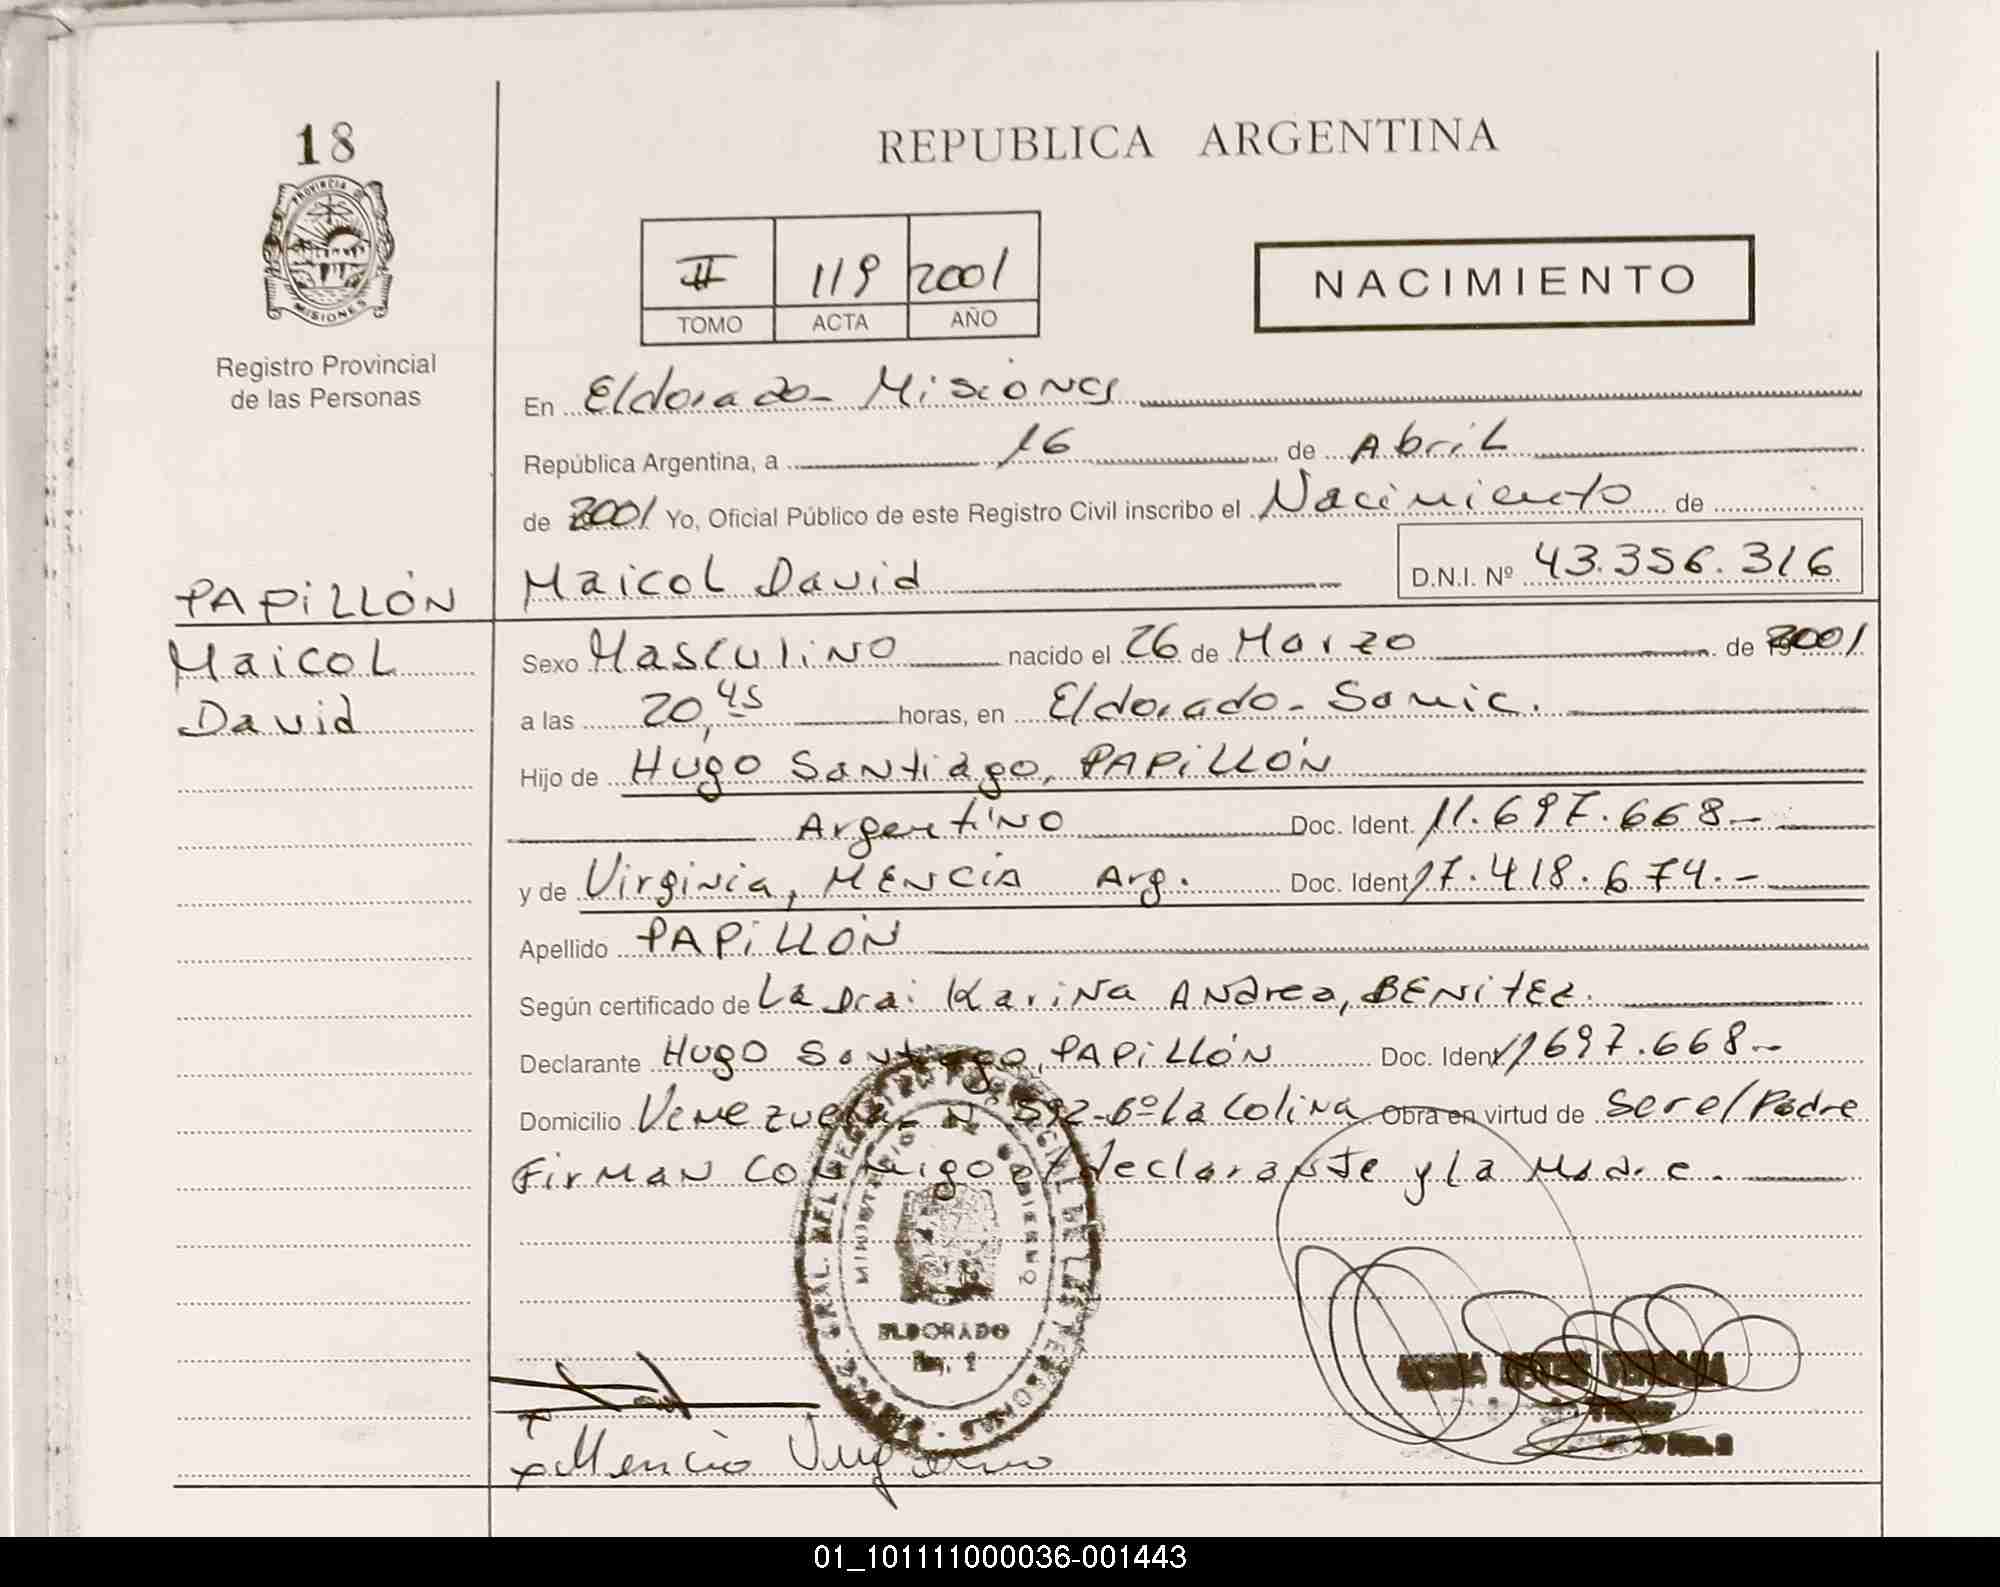 18
PROVINCIA DE
MISIONES
Registro Provincial
de las Personas
PAPiLLÓN
Maicol
David
REPUBLICA ARGENTINA
II 119 2001
TOMO ACTA AÑO
NACIMIENTO
En Eldorado - Misiones
República Argentina, a 16 de Abril
de 2001 Yo, Oficial Público de este Registro Civil inscribo el Nacimiento de
Maicol David D.N.I. Nº 43.356.316
Sexo Masculino nacido el 26 de Marzo de 2001
a las 20,45 horas, en Eldorado - Samic.
Hijo de Hugo Santiago, PAPiLLÓN
Argentino Doc. Ident. 11.697.668.-
y de Virginia, MENCIA Arg. Doc. Ident 17.418.674.-
Apellido PAPiLLÓN
Según certificado de La Dra: Karina Andrea, BENiTEZ.
Declarante Hugo Santiago, PAPiLLÓN Doc. Ident 11697.668.-
Domicilio Venezuela Nº 592-Bº La Colina Obra en virtud de ser el Padre
Firman conmigo el declarante y la Madre.
MINISTERIO DE GOBIERNO
ELDORADO
x Mencia Virginia
01_101111000036-001443